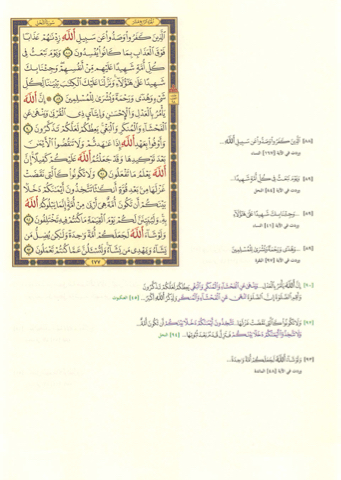 الجزء الرابع عشر سورة النحل
الَّذِينَ كَفَرُوا وَصَدُّوا عَن سَبِيلِ اللَّهِ زِدْنَاهُمْ عَذَابًا
فَوْقَ الْعَذَابِ بِمَا كَانُوا يُفْسِدُونَ ٨٨ وَيَوْمَ نَبْعَثُ فِي
كُلِّ أُمَّةٍ شَهِيدًا عَلَيْهِم مِّنْ أَنفُسِهِمْ وَجِئْنَا بِكَ
شَهِيدًا عَلَى هَؤُلَاءِ وَنَزَّلْنَا عَلَيْكَ الْكِتَابَ تِبْيَانًا لِّكُلِّ
شَيْءٍ وَهُدًى وَرَحْمَةً وَبُشْرَى لِلْمُسْلِمِينَ ٨٩ إِنَّ اللَّهَ
يَأْمُرُ بِالْعَدْلِ وَالْإِحْسَانِ وَإِيتَاءِ ذِي الْقُرْبَى وَيَنْهَى عَنِ
الْفَحْشَاءِ وَالْمُنكَرِ وَالْبَغْيِ يَعِظُكُمْ لَعَلَّكُمْ تَذَكَّرُونَ ٩٠
وَأَوْفُوا بِعَهْدِ اللَّهِ إِذَا عَاهَدتُّمْ وَلَا تَنقُضُوا الْأَيْمَانَ
بَعْدَ تَوْكِيدِهَا وَقَدْ جَعَلْتُمُ اللَّهَ عَلَيْكُمْ كَفِيلًا إِنَّ
اللَّهَ يَعْلَمُ مَا تَفْعَلُونَ ٩١ وَلَا تَكُونُوا كَالَّتِي نَقَضَتْ
غَزْلَهَا مِن بَعْدِ قُوَّةٍ أَنكَاثًا تَتَّخِذُونَ أَيْمَانَكُمْ دَخَلًا
بَيْنَكُمْ أَن تَكُونَ أُمَّةٌ هِيَ أَرْبَى مِنْ أُمَّةٍ إِنَّمَا يَبْلُوكُمُ اللَّهُ
بِهِ وَلَيُبَيِّنَنَّ لَكُمْ يَوْمَ الْقِيَامَةِ مَا كُنتُمْ فِيهِ تَخْتَلِفُونَ ٩٢
وَلَوْ شَاءَ اللَّهُ لَجَعَلَكُمْ أُمَّةً وَاحِدَةً وَلَكِن يُضِلُّ مَن
يَشَاءُ وَيَهْدِي مَن يَشَاءُ وَلَتُسْأَلُنَّ عَمَّا كُنتُمْ تَعْمَلُونَ ٩٣
٢٧٧
[٨٨] الَّذِينَ كَفَرُوا وَصَدُّوا عَن سَبِيلِ اللَّهِ...
[٨٩] وَيَوْمَ نَبْعَثُ فِي كُلِّ أُمَّةٍ شَهِيدًا...
[٨٩] ...وَجِئْنَا بِكَ شَهِيدًا عَلَى هَؤُلَاءِ...
[٨٩] ...وَهُدًى وَرَحْمَةً وَبُشْرَى لِلْمُسْلِمِينَ
[٩٠] إِنَّ اللَّهَ يَأْمُرُ بِالْعَدْلِ... وَيَنْهَى عَنِ الْفَحْشَاءِ وَالْمُنكَرِ وَالْبَغْيِ يَعِظُكُمْ لَعَلَّكُمْ تَذَكَّرُونَ
وَأَقِمِ الصَّلَاةَ إِنَّ الصَّلَاةَ تَنْهَى عَنِ الْفَحْشَاءِ وَالْمُنكَرِ وَلَذِكْرُ اللَّهِ أَكْبَرُ... [٤٥] العنكبوت
[٩٢] وَلَا تَكُونُوا كَالَّتِي نَقَضَتْ غَزْلَهَا... تَتَّخِذُونَ أَيْمَانَكُمْ دَخَلًا بَيْنَكُمْ أَن تَكُونَ أُمَّةٌ...
وَلَا تَتَّخِذُوا أَيْمَانَكُمْ دَخَلًا بَيْنَكُمْ فَتَزِلَّ قَدَمٌ بَعْدَ ثُبُوتِهَا... [٩٤] النحل
[٩٣] وَلَوْ شَاءَ اللَّهُ لَجَعَلَكُمْ أُمَّةً وَاحِدَةً...